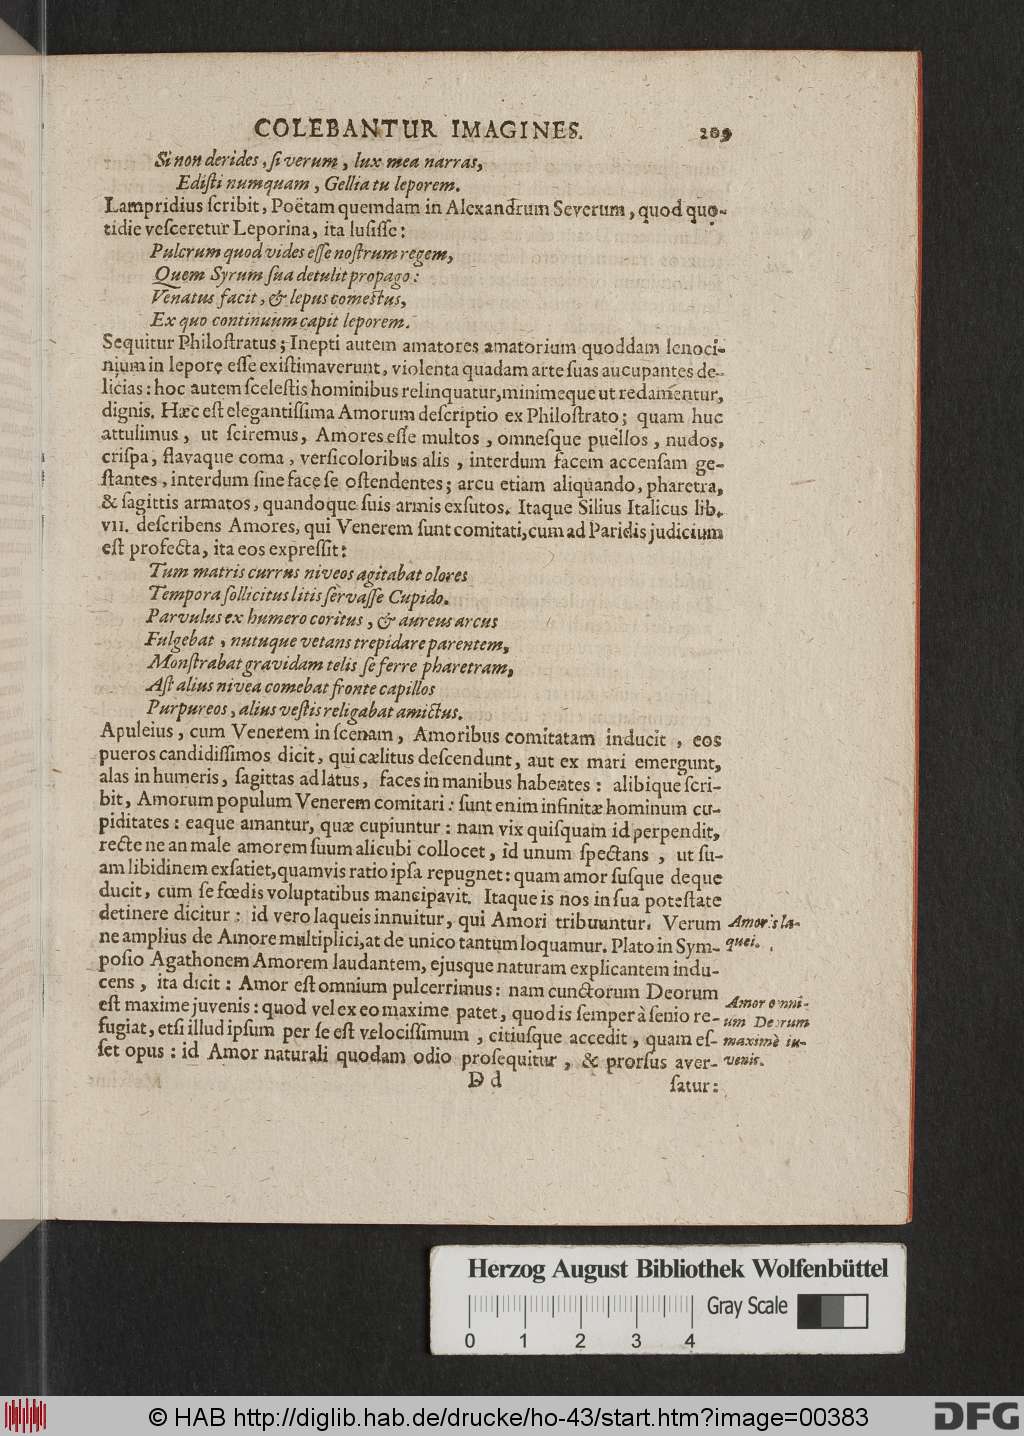 COLEBANTUR IMAGINES. 209
Si non derides, ſi verum, lux mea narras,
Ediſti numquam, Gellia tu leporem.
Lampridius ſcribit, Poëtam quemdam in Alexandrum Severum, quod quo-
tidie veſceretur Leporina, ita luſiſſe:
Pulcrum quod vides eſſe noſtrum regem,
Quem Syrum ſua detulit propago:
Venatus facit, & lepus comeſtus,
Ex quo continuum capit leporem.
Sequitur Philoſtratus; Inepti autem amatores amatorium quoddam lenoci-
nium in lepore eſſe exiſtimaverunt, violenta quadam arte ſuas aucupantes de-
licias: hoc autem ſceleſtis hominibus relinquatur, minimeque ut redamentur,
dignis. Hæc eſt elegantiſſima Amorum deſcriptio ex Philoſtrato; quam huc
attulimus, ut ſciremus, Amores eſſe multos, omneſque puellos, nudos,
criſpa, flavaque coma, verſicoloribus alis, interdum facem accenſam ge-
ſtantes, interdum ſine face ſe oſtendentes; arcu etiam aliquando, pharetra,
& ſagittis armatos, quandoque ſuis armis exſutos. Itaque Silius Italicus lib.
VII. deſcribens Amores, qui Venerem ſunt comitati, cum ad Paridis judicium
eſt profecta, ita eos expreſſit:
Tum matris currus niveos agitabat olores
Tempora ſollicitus litis ſervaſſe Cupido.
Parvulus ex humero coritus, & aureus arcus
Fulgebat, nutuque vetans trepidare parentem,
Monſtrabat gravidam telis ſe ferre pharetram,
Aſt alius nivea comebat fronte capillos
Purpureos, alius veſtis religabat amictus.
Apuleius, cum Venerem in ſcenam, Amoribus comitatam inducit, eos
pueros candidiſſimos dicit, qui cælitus deſcendunt, aut ex mari emergunt,
alas in humeris, ſagittas ad latus, faces in manibus habentes: alibique ſcri-
bit, Amorum populum Venerem comitari: ſunt enim infinitæ hominum cu-
piditates: eaque amantur, quæ cupiuntur: nam vix quiſquam id perpendit,
recte ne an male amorem ſuum alicubi collocet, id unum ſpectans, ut ſu-
am libidinem exſatiet, quamvis ratio ipſa repugnet: quam amor ſuſque deque
ducit, cum ſe fœdis voluptatibus mancipavit. Itaque is nos in ſua poteſtate
detinere dicitur: id vero laqueis innuitur, qui Amori tribuuntur. Verum
Amoris la-
quei.
ne amplius de Amore multiplici, at de unico tantum loquamur. Plato in Sym-
poſio Agathonem Amorem laudantem, ejuſque naturam explicantem indu-
cens, ita dicit: Amor eſt omnium pulcerrimus: nam cunctorum Deorum
eſt maxime juvenis: quod vel ex eo maxime patet, quod is ſemper à ſenio re-
fugiat, etſi illud ipſum per ſe eſt velociſſimum, citiuſque accedit, quam eſ-
ſet opus: id Amor naturali quodam odio proſequitur, & prorſus aver-
Amor omni-
um Deorum
maximè iu-
venis.
D d
ſatur:
Herzog August Bibliothek Wolfenbüttel
Gray Scale
0 1 2 3 4
© HAB http://diglib.hab.de/drucke/ho-43/start.htm?image=00383
DFG